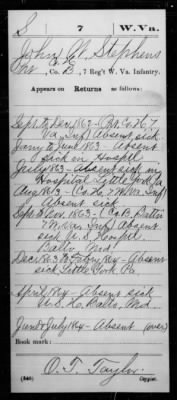 S 7 W.Va.
John W. Stephens
Pvt, Co. B, 7 Reg't W. Va. Infantry.
Appears on Returns as follows:
Sept. to Nov. 1862 - Co. H, 7
Va. Inf Absent sick
Jany to June 1863 - Absent
sick in Hospil
July 1863 - Absent sick in
Hospital Little York Pa
Aug 1863 - Co. H, 7 W. Va. Inf
Absent sick
Sept to Nov. 1863 - Co B. Battn
7 W. Va. Inf Absent
sick U.S. Hospil
Balto. Md.
Dec 1863 to Feby 1864 - Absent
sick Little York Pa.
April 1864 - Absent sick
U.S. H. Balto, Md.
June & July 1864 - Absent (over)
Book mark:
O. T. Taylor
(546) Copyist.